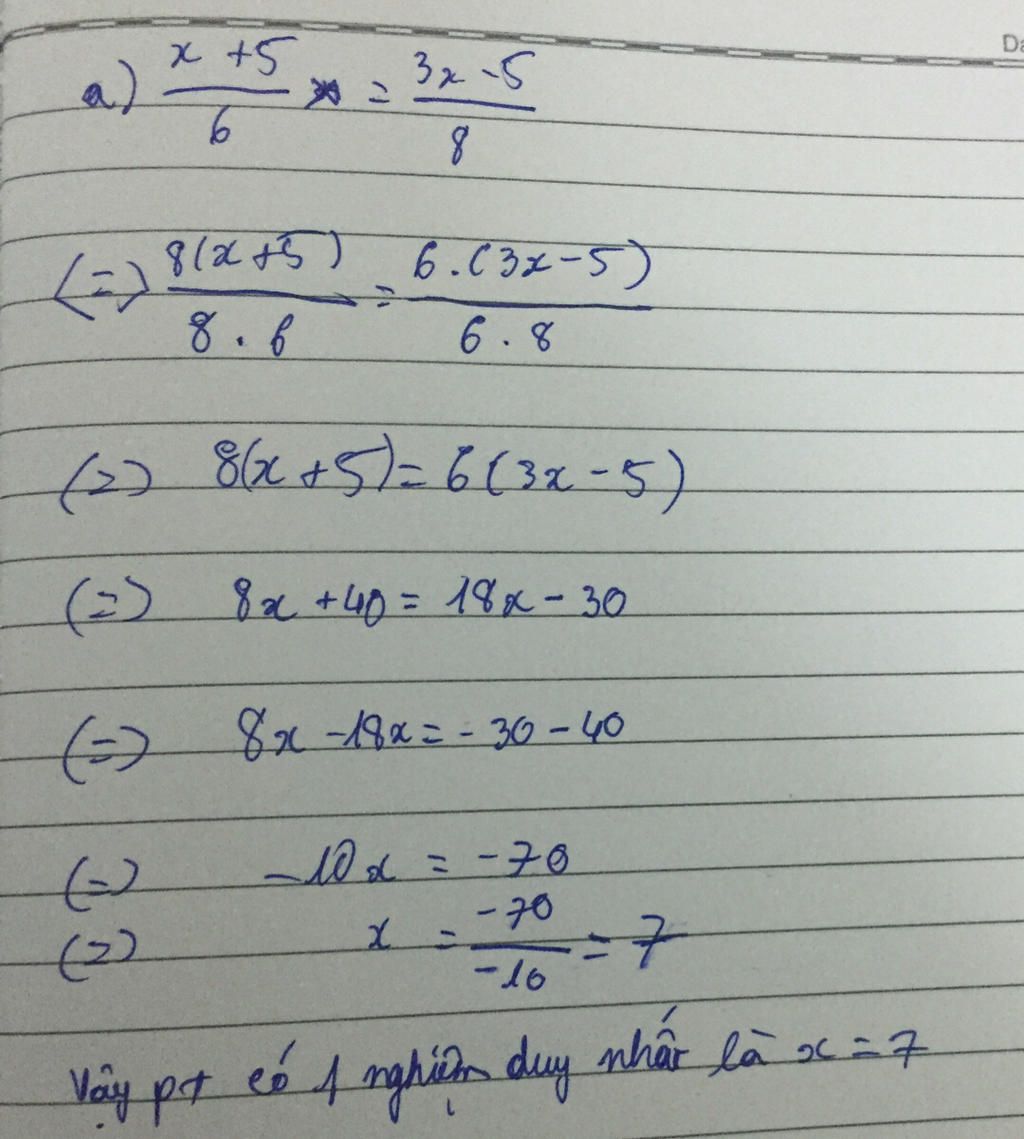 Da
a) \frac{x+5}{6} = \frac{3x-5}{8}
(=) \frac{8(x+5)}{8.6} = \frac{6.(3x-5)}{6.8}
(=) 8(x+5) = 6(3x-5)
(=) 8x+40 = 18x-30
(=) 8x-18x = -30-40
(=) -10x = -70
(=) x = \frac{-70}{-10} = 7
Vậy pt có 1 nghiệm duy nhất là x = 7